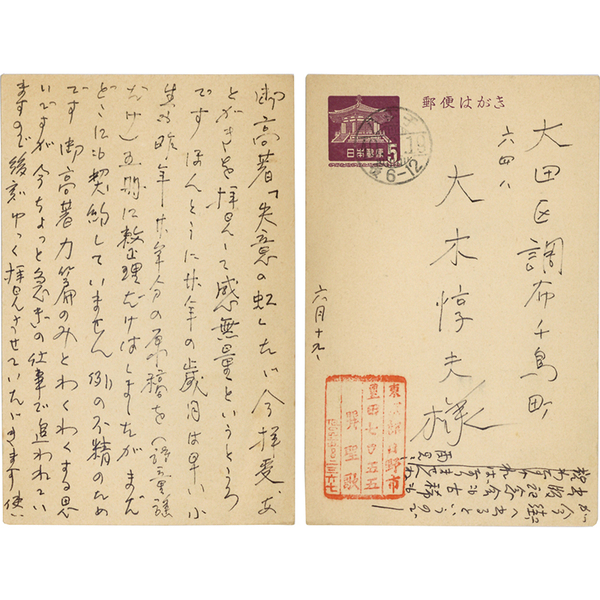 御高著「失意の虹」たゞ今拝受あ
とがきを拝見して感無量というところ
です ほんとうに廿年の歳月は早い 小
生も昨年廿年分の原稿を
だけ 五冊に整理だけはしましたが まだ
どこにも契約していません 例の不精のため
です 御高著力篇のみとわくわくする思
いですが 今ちょっと急ぎの仕事で追われてい
ますので後刻ゆっくり拝見させていただきます 使い
郵便はがき
日本郵便
5
6-12
大田区調布千鳥町
六四八
大木惇夫様
六月十九
東京都日野市
豊田七の五五
巽聖歌
が今街へ出るというので